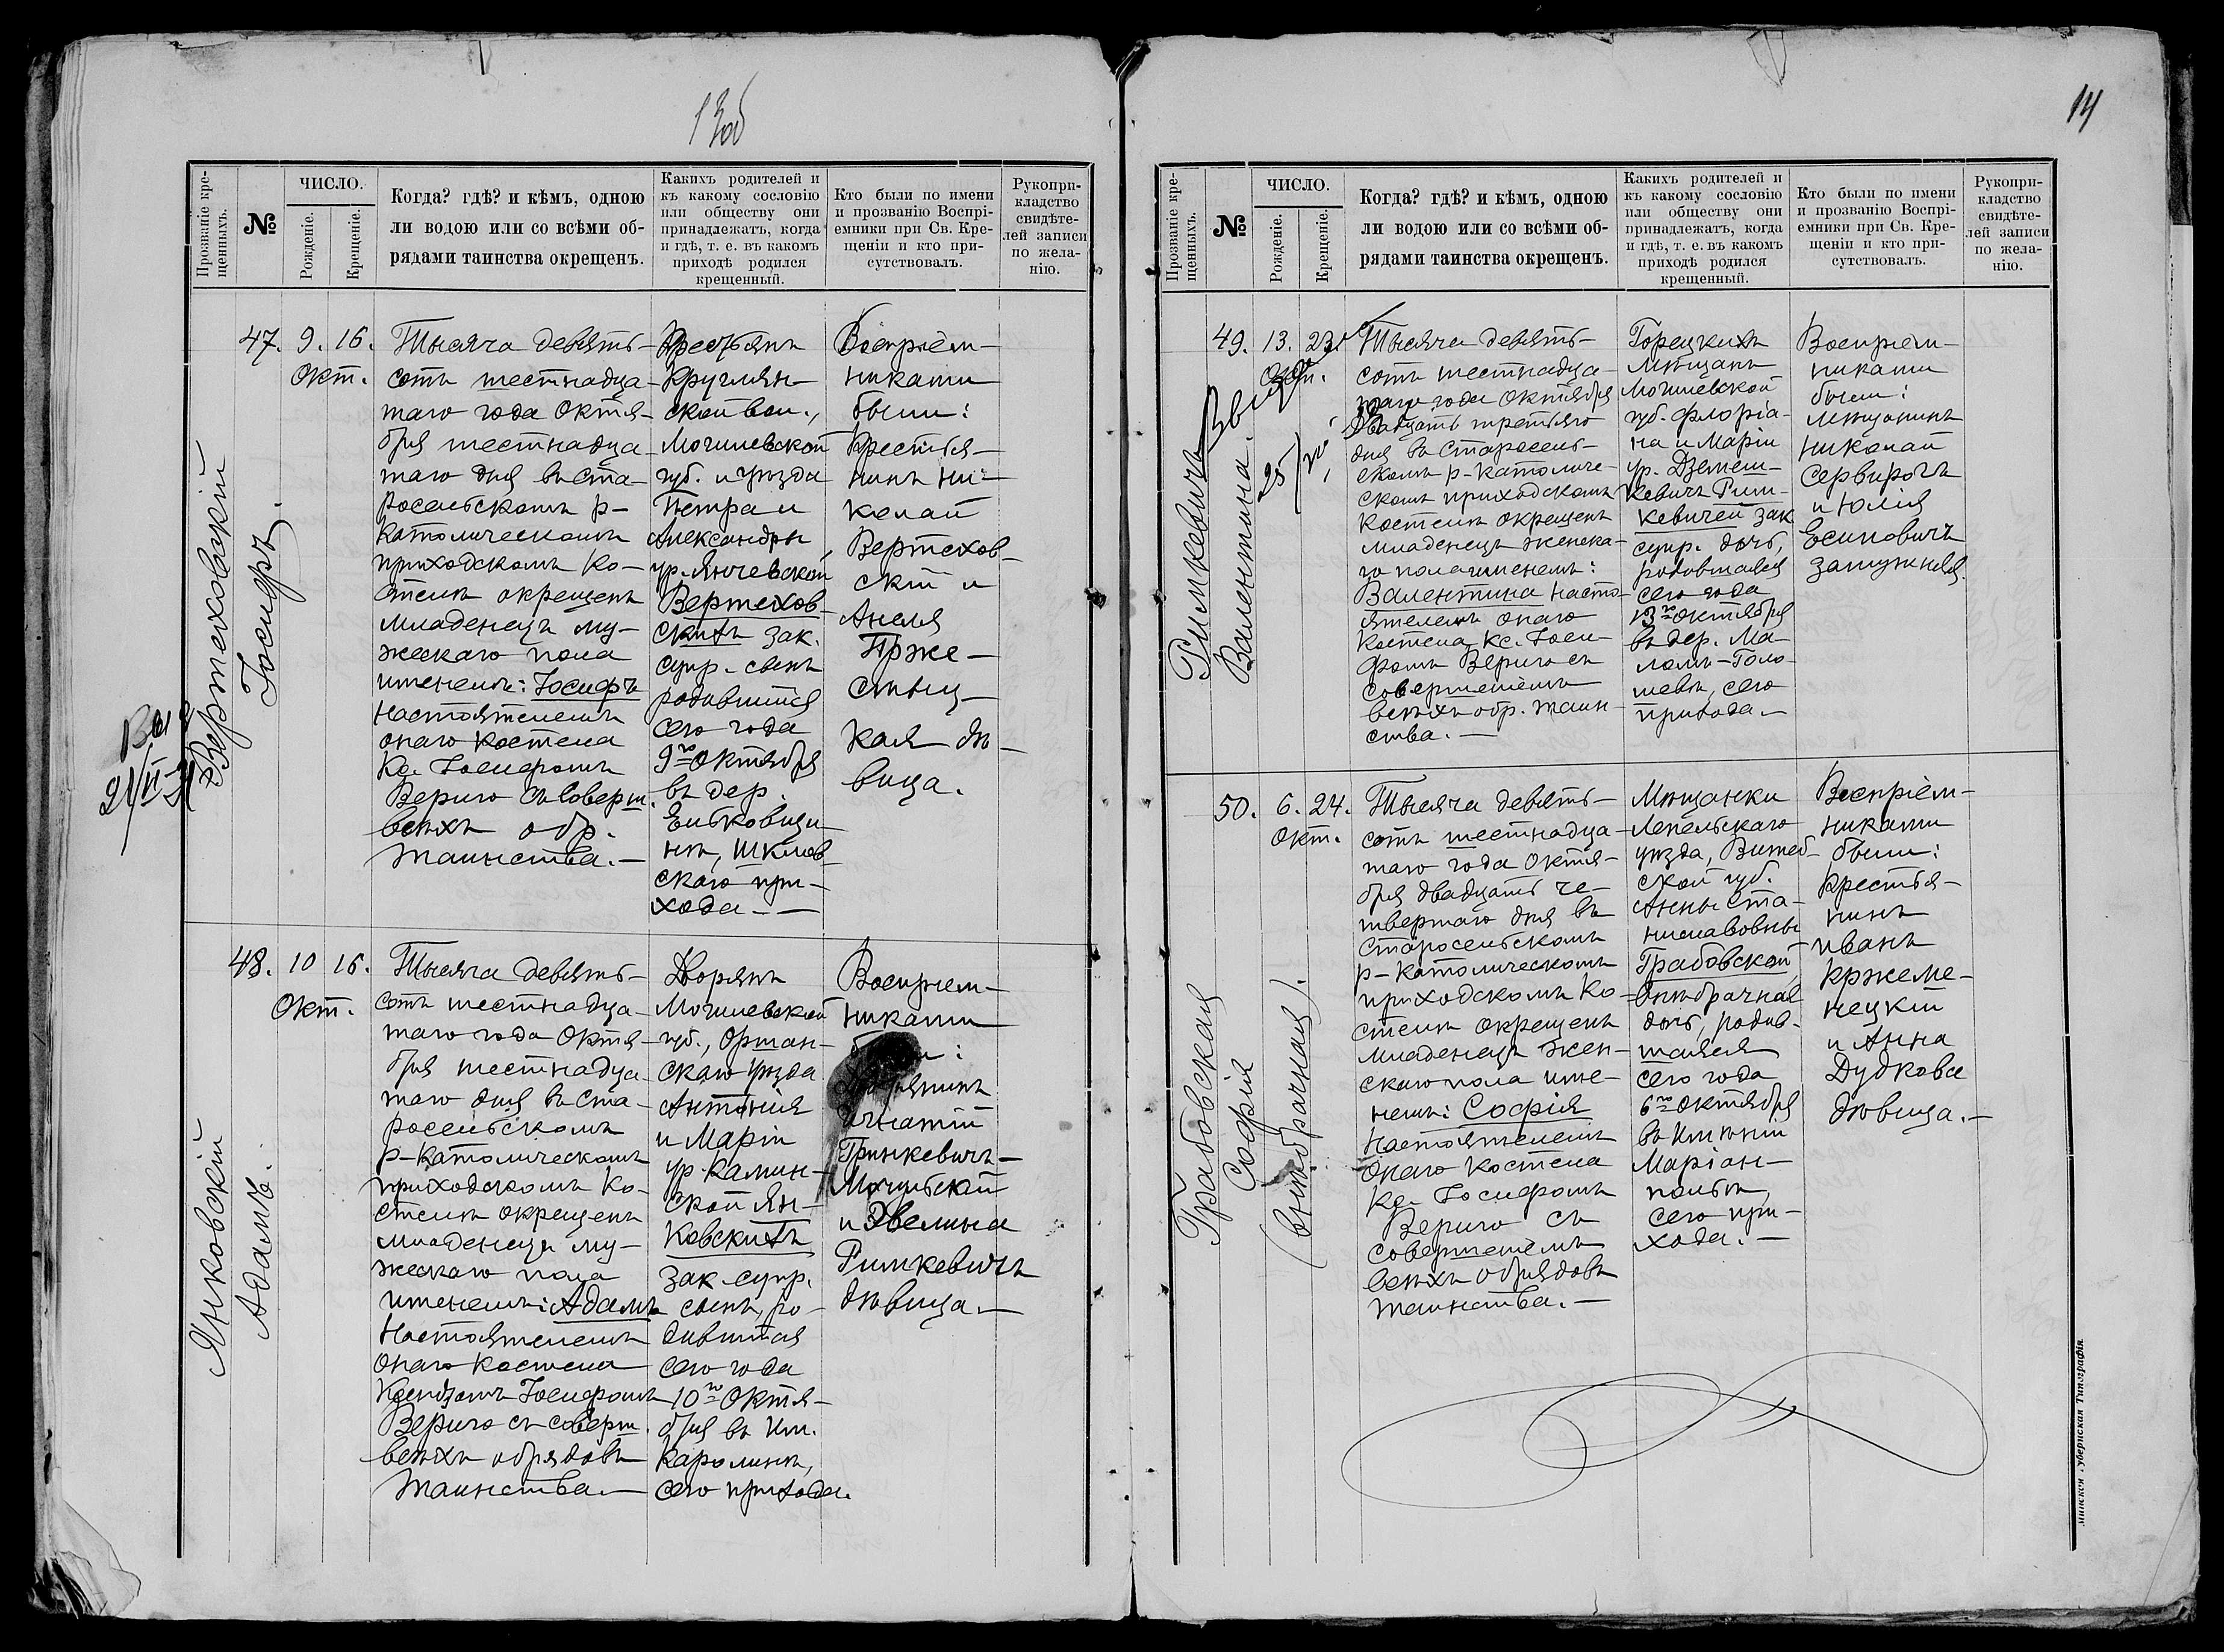 13об
Прозваніе кре-
щенныхъ.
№
ЧИСЛО.
Рожденіе.
Крещеніе.
Когда? гдѣ? и кѣмъ, одною
ли водою или со всѣми об-
рядами таинства окрещенъ.
Какихъ родителей и
къ какому сословію
или обществу они
принадлежатъ, когда
и гдѣ, т. е. въ какомъ
приходѣ родился
крещенный.
Кто были по имени
и прозванію Воспрі-
емники при Св. Кре-
щеніи и кто при-
сутствовалъ.
Рукопри-
кладство
свидѣте-
лей записи
по жела-
нію.
Вертеховскій
Іосифъ.
47. 9. 16.
Окт.
Тысяча девять-
сотъ шестнадца-
таго года Октя-
бря шестнадца-
таго дня въ Ста-
росельскомъ р-
католическомъ
приходскомъ ко-
стелѣ окрещенъ
младенецъ му-
жескаго пола
именемъ: Іосифъ
настоятелемъ
онаго костела
Кс. Іосифомъ
Вериго съ соверш.
всѣхъ обр.
таинства.—
Крестьянъ
Круглян-
ской вол.,
Могилевской
губ. и уѣзда
Петра и
Александры,
ур. Янчевской
Вертехов-
скихъ зак.
супр. сынъ
родившійся
сего года
9го Октября
въ дер.
Ельковщи-
нѣ, Шклов-
скаго при-
хода.—
Воспріем-
никами
были:
Крестья-
нинъ Ни-
колай
Вертехов-
скій и
Анеля
Прже-
стнец-
кая дѣ-
вица.
Янковскій
Адамъ.
48. 10 16.
Окт.
Тысяча девять-
сотъ шестнадца-
таго года Октя-
бря шестнадца-
таго дня въ Ста-
росельскомъ
р-католическомъ
приходскомъ ко-
стелѣ окрещенъ
младенецъ му-
жескаго пола
именемъ: Адамъ
настоятелемъ
онаго костела
Ксендзомъ Іосифомъ
Вериго съ соверш.
всѣхъ обрядовъ
таинства.—
Дворянъ
Могилевской
губ., Оршан-
скаго уѣзда
Антонія
и Маріи
ур. Калин-
ской Ян-
ковскихъ
зак. супр.
сынъ, ро-
дившійся
сего года
10го Октя-
бря въ им.
Каролинѣ,
сего прихода.
Воспріем-
никами
были:
Дворянинъ
Игнатій
Гринкевичъ-
Мочульскій
и Эвелина
Римкевичъ
дѣвица.—
14
Прозваніе кре-
щенныхъ.
№
ЧИСЛО.
Рожденіе.
Крещеніе.
Когда? гдѣ? и кѣмъ, одною
ли водою или со всѣми об-
рядами таинства окрещенъ.
Какихъ родителей и
къ какому сословію
или обществу они
принадлежатъ, когда
и гдѣ, т. е. въ какомъ
приходѣ родился
крещенный.
Кто были по имени
и прозванію Воспрі-
емники при Св. Кре-
щеніи и кто при-
сутствовалъ.
Рукопри-
кладство
свидѣте-
лей записи
по жела-
нію.
Римкевичъ
Валентина.
49. 13. 23.
Окт.
Тысяча девять-
сотъ шестнадца-
таго года Октября
двадцать третьяго
дня въ Старосель-
скомъ р-католиче-
скомъ приходскомъ
костелѣ окрещенъ
младенецъ женска-
го пола именемъ:
Валентина насто-
ятелемъ онаго
костела Кс. Іоси-
фомъ Вериго съ
совершеніемъ
всѣхъ обр. таин-
ства.—
Горецкихъ
мѣщанъ
Могилевской
губ. Флоріа-
на и Маріи
ур. Дземеш-
кевичъ Рим-
кевичей зак.
супр. дочь,
родившаяся
сего года
13го Октября
въ дер. Ма-
ломъ-Голо-
шевѣ, сего
прихода.—
Воспріем-
никами
были:
Мѣщанинъ
Николай
Сервирогъ
и Юлія
Есиповичъ
замужняя.
Грабовская
Софія
(внѣбрачная).
50. 6. 24.
Окт.
Тысяча девять-
сотъ шестнадца-
таго года Октя-
бря двадцать че-
твертаго дня въ
Старосельскомъ
р-католическомъ
приходскомъ ко-
стелѣ окрещенъ
младенецъ жен-
скаго пола име-
немъ: Софія
настоятелемъ
онаго костела
Кс. Іосифомъ
Вериго съ
совершеніемъ
всѣхъ обрядовъ
таинства.—
Мѣщанки
Лепельскаго
уѣзда, Витеб-
ской губ.
Анны Ста-
ниславовны
Грабовской,
внѣбрачная
дочь, родив-
шаяся
сего года
6го Октября
въ имѣніи
Маріан-
польѣ,
сего при-
хода.—
Воспріем-
никами
были:
Крестья-
нинъ
Иванъ
Кржеме-
нецкій
и Анна
Дудкова
дѣвица.—
Минская Губернская Типографія.